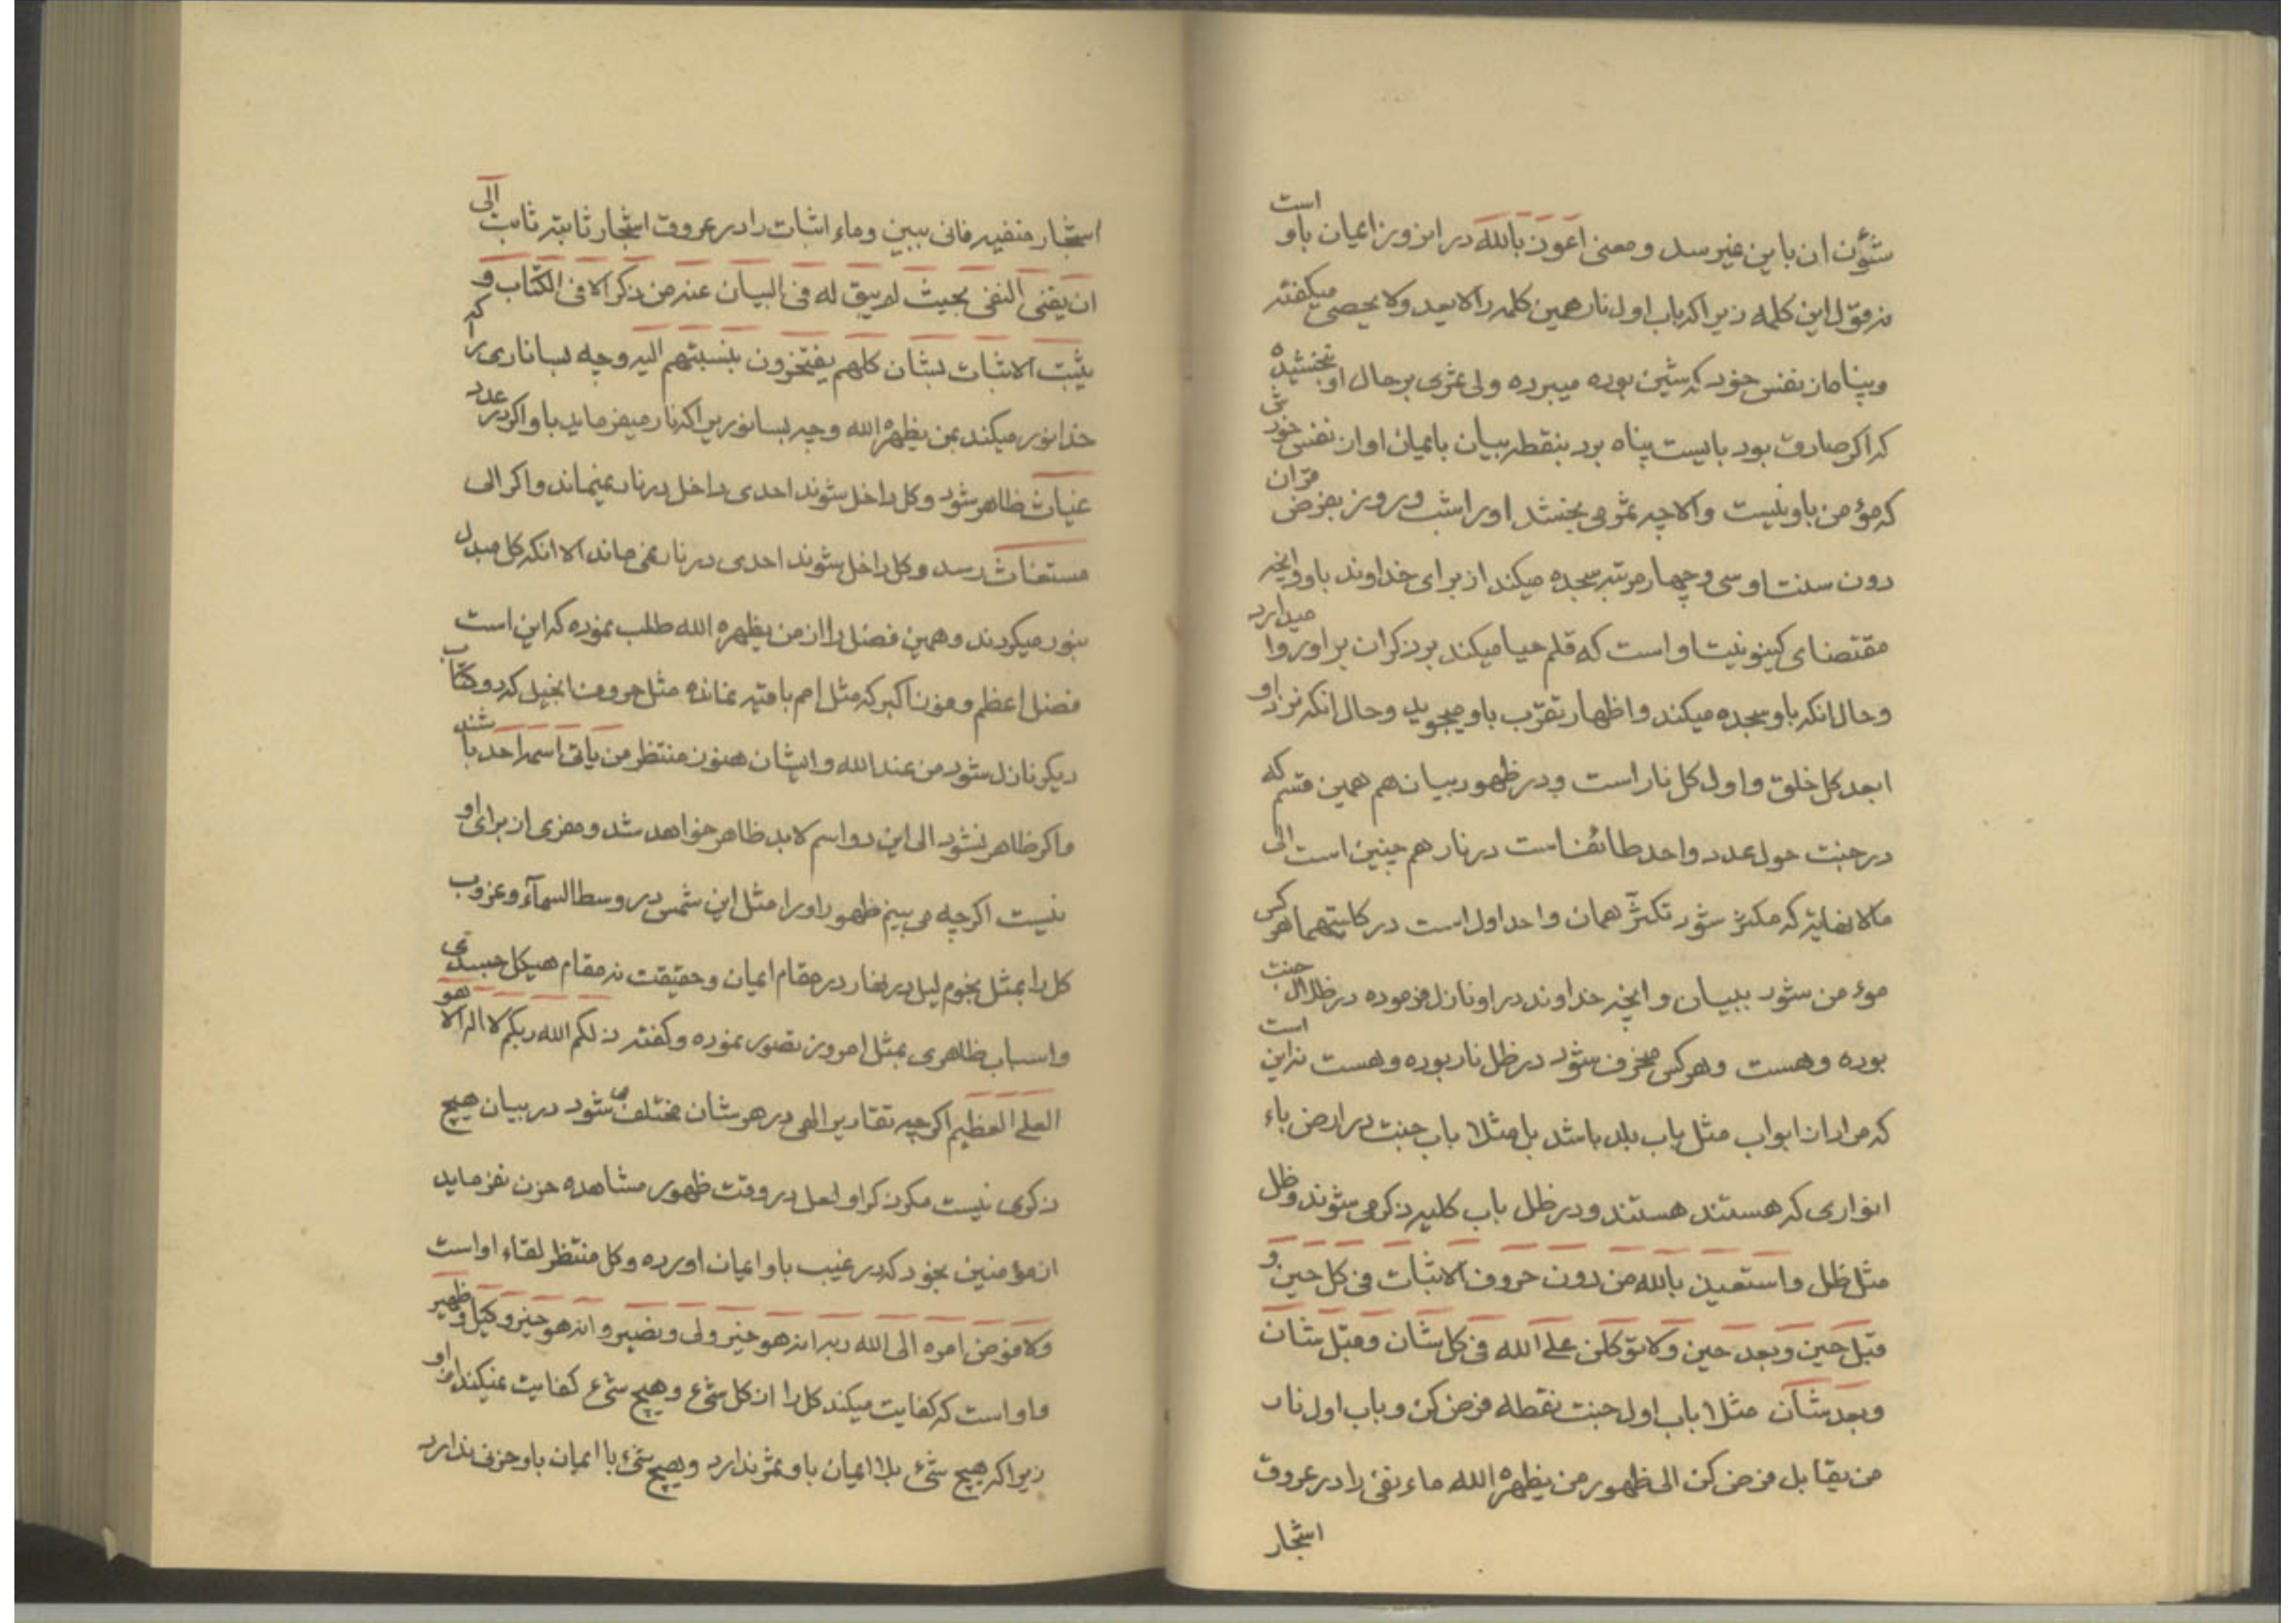 شئون ان باین غیر سد و معنی اعوذ بالله در این روز ایمان باو است
نه قول این کلمه زیرا که باب اول نار همین کلمه را لا یعد و لا یحصی میکفته
و پناه از نفس خود که شین بوده میبرده ولی ثمری بر حال او نبخشیده
که اکر صادق بود بایست پناه برد بنقطه بیان بایمان او از نفس خودش
که مؤمن باو نیست و الا چه ثمر می بخشد او را شب و روز بفرض قران
دون سنت او سی و چهار مرتبه سجده میکند از برای خداوند باو و انچه
مقتضای کینونیت او است که قلم حیا میکند بر ذکر ان بر او روا میدارد
و حال انکه باو سجده میکند و اظهار تقرّب باو میجوید و حال انکه نزد او
ابعد کل خلق و اول کل نار است و در ظهور بیان هم همین قسم که
در جنت حول عدد واحد طائف است در نار هم چنین است الی
مالا نهایه که مکثر شود تکثّر همان واحد اول است در کلیتهما هر کس
مؤمن شود ببیان و انچه خداوند در او نازل فرموده در ظلال جنت
بوده و هست و هر کس منحرف شود در ظل نار بوده و هست نه این است
که مراد از ابواب مثل باب بلد باشد بل مثلا باب جنت در ارض باء
انواری که هستند هستند و در ظل باب کلیه ذکر می شوند و ظل
مثل ظل و استعیذ بالله من دون حروف الاثبات فی کل حین و
قبل حین و بعد حین و لاتوکلن علی الله فی کل شان و قبل شان
و بعد شان مثلا باب اول جنت نقطه فرض کن و باب اول نار
من یقابل فرض کن الی ظهور من یظهره الله ماء نفی را در عروق
اشجار
اشجار منفیه فانی ببین و ماء اثبات را در عروق اشجار ثابته ثابت الی
ان یفنی النفی بحیث لم یبق له فی البیان عنه من ذکر الا فی الکتاب و
یثبت الاثبات بشان کلهم یفتخرون بنسبتهم الیه و چه بسا ناری را که
خدا نور میکند بمن یظهره الله و چه بسا نوریرا که نار میفرماید باو اکر در عدد
غیاث ظاهر شود و کل داخل شوند احدی داخل در نار نمیماند و اکر الی
مستغاث رسد و کل داخل شوند احدی در نار نمی ماند الا انکه کل مبدل
بنور میکردند و همین فضل را از من یظهره الله طلب نموده که این است
فضل اعظم و فوز اکبر که مثل امم باقیه نمانده مثل حروف انجیل که دو کتاب
دیکر نازل شود من عند الله و ایشان هنوز منتظر من یاتی اسمه احمد باشند
و اکر ظاهر نشود الی این دو اسم لابد ظاهر خواهد شد و مفری از برای او
نیست اکرچه می بینم ظهور او را مثل این شمس در وسط السمآء و غروب
کل را بمثل نجوم لیل در نهار در مقام ایمان و حقیقت نه مقام هیکل جسدی
و اسباب ظاهری بمثل امروز تصور نموده و کفته ذلکم الله ربکم لا اله الا هو
العلی العظیم اکرچه تقادیر الهی در هر شان مختلف می شود در بیان هیچ
ذکری نیست مکر ذکر او لعل در وقت ظهور مشاهده حزن نفرماید
از مؤمنین بخود که در غیب باو ایمان اورده و کل منتظر لقاء او است
و لافوض امره الی الله ربه انه هو خیر ولی و نصیر و انه هو خیر وکیل و ظهیر
و او است که کفایت میکند کل را از کل شیء و هیچ شیء کفایت نمیکند از او
زیرا که هیچ شیء بلا ایمان باو ثمر ندارد و هیچ شیء با ایمان باو حزنی ندارد